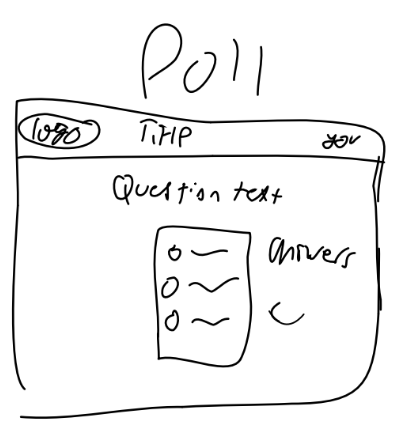 Poll
logo Title you
Question text
answers